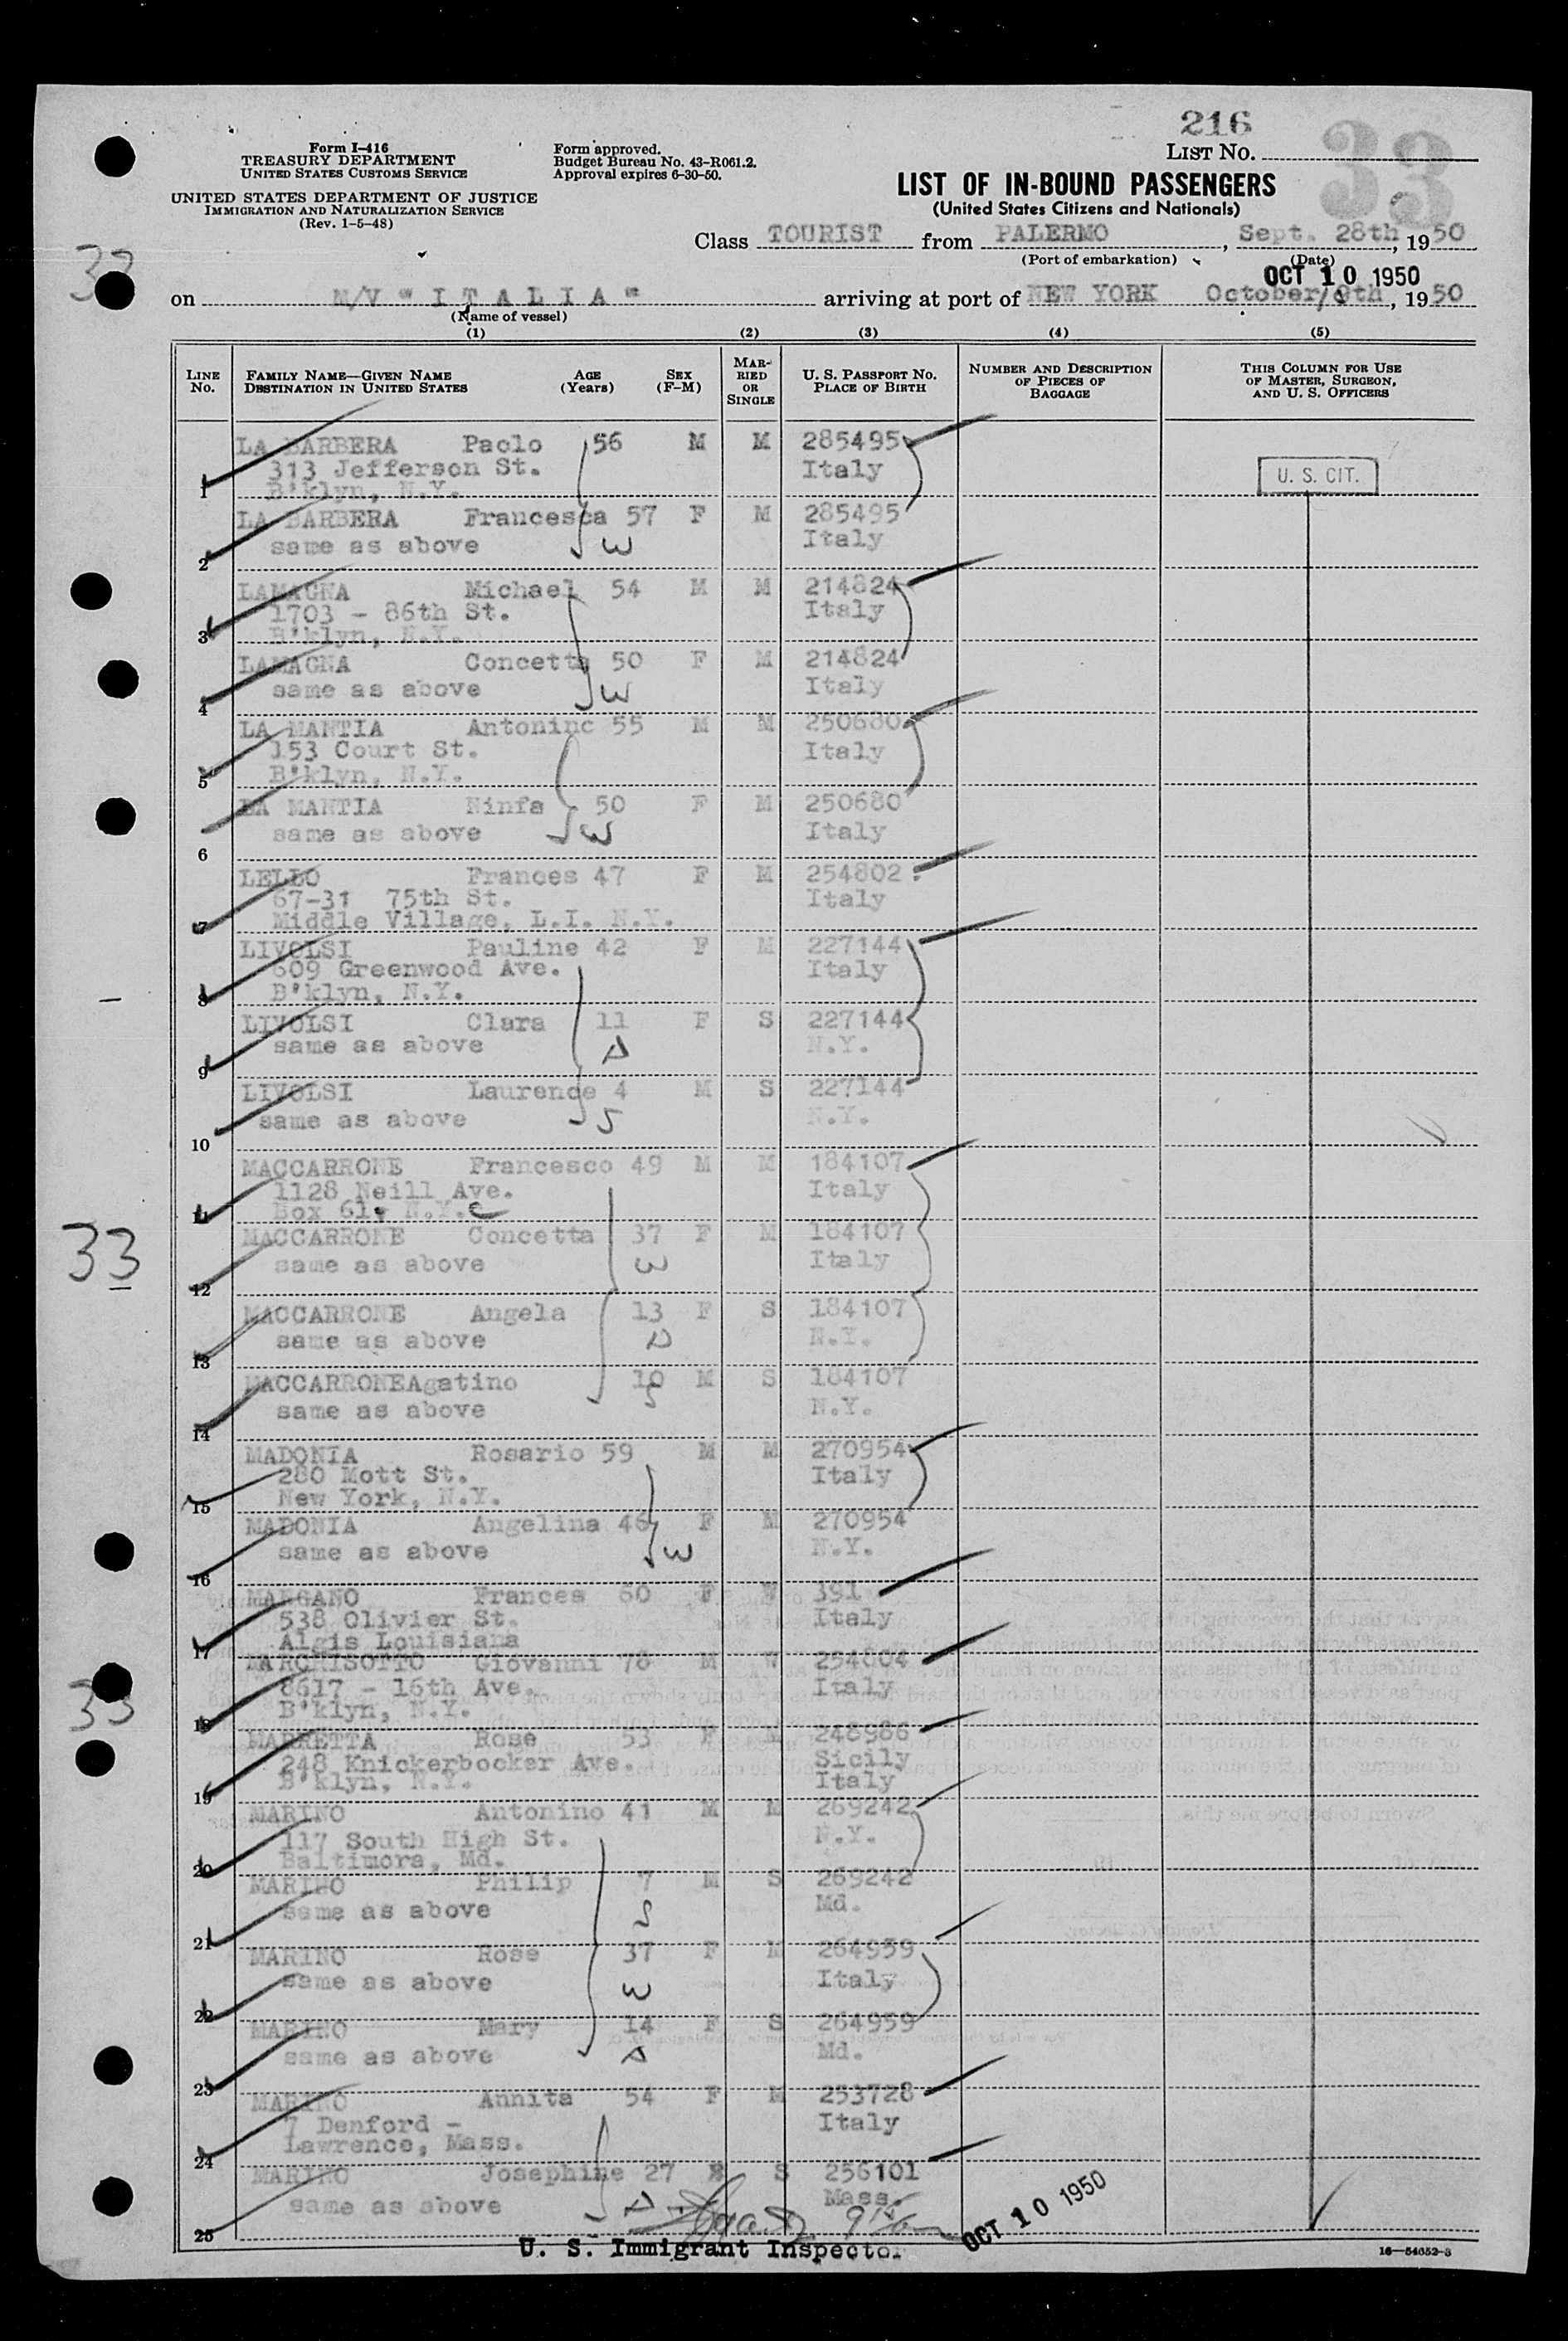 216
33
Form I-416
TREASURY DEPARTMENT
UNITED STATES CUSTOMS SERVICE
UNITED STATES DEPARTMENT OF JUSTICE
IMMIGRATION AND NATURALIZATION SERVICE
(Rev. 1-5-48)
Form approved.
Budget Bureau No. 43-R061.2.
Approval expires 6-30-50.
LIST NO.
LIST OF IN-BOUND PASSENGERS
(United States Citizens and Nationals)
Class TOURIST from PALERMO, Sept. 28th, 1950
(Port of embarkation) (Date)
OCT 10 1950
on M/V "ITALIA" arriving at port of NEW YORK October 9th, 1950
(Name of vessel)
(1) (2) (3) (4) (5)
LINE NO.
FAMILY NAME—GIVEN NAME
DESTINATION IN UNITED STATES
AGE (Years)
SEX (F-M)
MARRIED OR SINGLE
U. S. PASSPORT NO.
PLACE OF BIRTH
NUMBER AND DESCRIPTION OF PIECES OF BAGGAGE
THIS COLUMN FOR USE OF MASTER, SURGEON, AND U. S. OFFICERS
LA BARBERA Paolo 56 M M 285495
313 Jefferson St. Italy
1 B'klyn, N.Y.
U. S. CIT.
LA BARBERA Francesca 57 F M 285495
2 same as above W Italy
LAMAGNA Michael 54 M M 214824
1703 - 86th St. Italy
3 B'klyn, N.Y.
LAMAGNA Concetta 50 F M 214824
4 same as above W Italy
LA MANTIA Antonino 55 M M 250680
153 Court St. Italy
5 B'klyn, N.Y.
LA MANTIA Ninfa 50 F M 250680
6 same as above W Italy
LELLO Frances 47 F M 254802
67-31 75th St. Italy
7 Middle Village, L.I. N.Y.
LIVOLSI Pauline 42 F M 227144
609 Greenwood Ave. Italy
8 B'klyn, N.Y.
LIVOLSI Clara 11 F S 227144
9 same as above D N.Y.
LIVOLSI Laurence 4 M S 227144
10 same as above S N.Y.
MACCARRONE Francesco 49 M M 184107
1128 Neill Ave. Italy
11 Box 61, N.Y.C
33
MACCARRONE Concetta 37 F M 184107
12 same as above W Italy
MACCARRONE Angela 13 F S 184107
13 same as above D N.Y.
MACCARRONEAgatino 10 M S 184107
14 same as above S N.Y.
MADONIA Rosario 59 M M 270954
280 Mott St. Italy
15 New York, N.Y.
MADONIA Angelina 46 F M 270954
16 same as above W N.Y.
MANGANO Frances 60 F W 391
538 Olivier St. Italy
17 Algis Louisiana
MARCHISOTTO Giovanni 78 M W 254804
8617 - 16th Ave. Italy
18 B'klyn, N.Y.
33
MARRETTA Rose 53 F M 248986
248 Knickerbocker Ave. Sicily
19 B'klyn, N.Y. Italy
MARINO Antonino 41 M M 269242
117 South High St. N.Y.
20 Baltimora, Md.
MARINO Philip 7 M S 269242
21 same as above S Md.
MARINO Rose 37 F M 264959
22 same as above W Italy
MARINO Mary 14 F S 264959
23 same as above D Md.
MARINO Annita 54 F M 253728
7 Denford - Italy
24 Lawrence, Mass.
MARINO Josephine 27 S 256101
25 same as above D Mass.
OCT 10 1950
U. S. Immigrant Inspector
16—54652-3